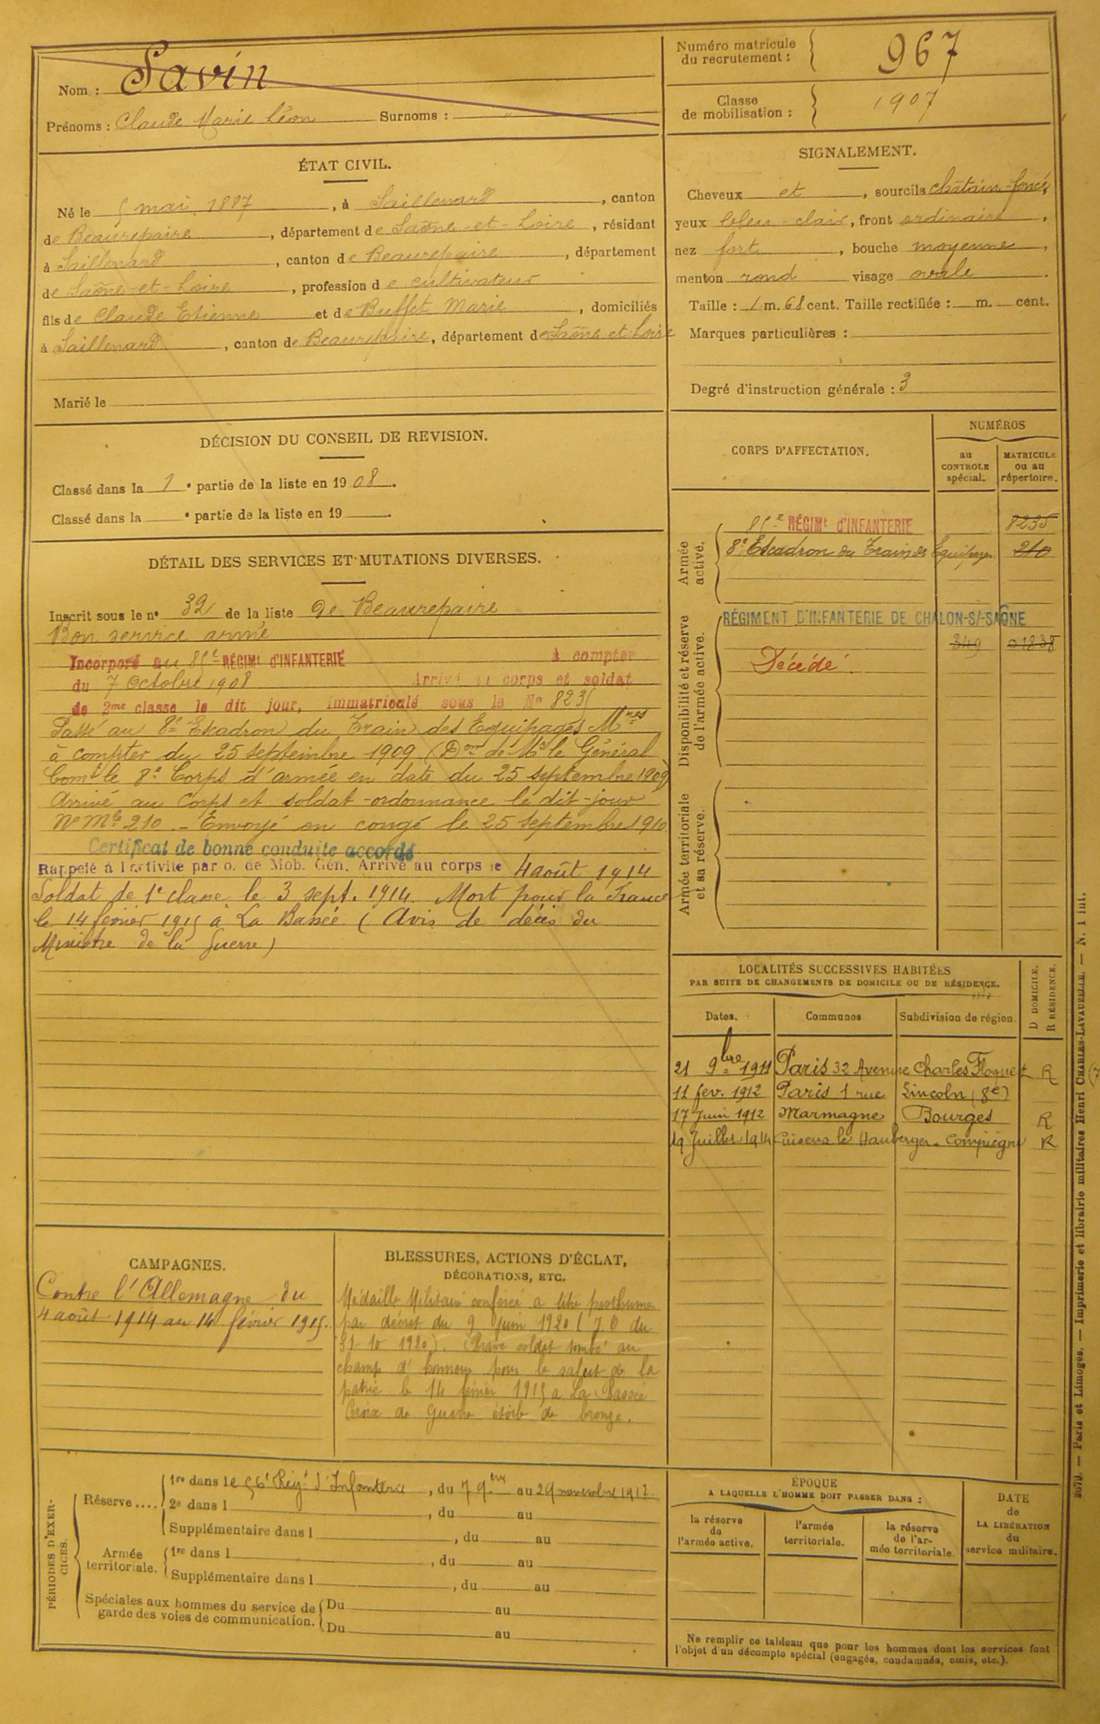 Nom : Savin
Prénoms : Claude Marie Léon Surnoms : "
Numéro matricule du recrutement : 967
Classe de mobilisation : 1907
ÉTAT CIVIL.
Né le 5 mai 1887, à Saillenard, canton
de Beaurepaire, département de Saône-et-Loire, résidant
à Saillenard, canton de Beaurepaire, département
de Saône-et-Loire, profession de cultivateur
fils de Claude Etienne et de Buffet Marie, domiciliés
à Saillenard, canton de Beaurepaire, département de Saône et Loire
Marié le
SIGNALEMENT.
Cheveux et, sourcils châtain-foncé
yeux bleu-clair, front ordinaire,
nez fort, bouche moyenne,
menton rond visage ovale.
Taille : 1 m. 68 cent. Taille rectifiée : m. cent.
Marques particulières :
Degré d'instruction générale : 3
DÉCISION DU CONSEIL DE REVISION.
Classé dans la 1e partie de la liste en 1908.
Classé dans la e partie de la liste en 19
DÉTAIL DES SERVICES ET MUTATIONS DIVERSES.
Inscrit sous le n° 32 de la liste de Beaurepaire
Bon service armé
Incorporé au 85e RÉGIMt d'INFANTERIE à compter
du 7 Octobre 1908 Arrivé au corps et soldat
de 2me classe le dit jour, immatriculé sous le No 8235
Passé au 8e Escadron du Train des Equipages Mres
à compter du 25 septembre 1909 (Don de Mr le Général
Comt le 8e Corps d'armée en date du 25 septembre 1909)
Arrivé au Corps et soldat-ordonnance le dit-jour
No Mle 210 - Envoyé en congé le 25 septembre 1910
Certificat de bonne conduite accordé
Rappelé à l'activité par o. de Mob. Gén. Arrivé au corps le 4 août 1914
Soldat de 1e classe le 3 sept. 1914. Mort pour la France
le 14 février 1915 à La Bassée (Avis de décès du
Ministre de la Guerre)
CORPS D'AFFECTATION.
NUMÉROS
au CONTROLE spécial.
MATRICULE ou au répertoire.
Armée active.
85e RÉGIMt d'INFANTERIE 8235
8e Escadron du Train des Equipages 210
Disponibilité et réserve de l'armée active.
RÉGIMENT D'INFANTERIE DE CHALON-S/-SAÔNE
349 01838
Décédé
Armée territoriale et sa réserve.
LOCALITÉS SUCCESSIVES HABITÉES
PAR SUITE DE CHANGEMENTS DE DOMICILE OU DE RÉSIDENCE.
Dates. Communes Subdivision de région. D DOMICILE. R RÉSIDENCE.
21 9bre 1911 Paris 32 Avenue Charles Floquet R
11 fev. 1912 Paris 1 rue Lincoln (8e)
17 Juin 1912 Marmagne Bourges R
19 Juillet 1914 le Compiègne R
CAMPAGNES.
Contre l'Allemagne du
4 août 1914 au 14 février 1915.
BLESSURES, ACTIONS D'ÉCLAT,
DÉCORATIONS, ETC.
Médaille Militaire conférée à titre posthume
par décret du 9 Juin 1920 (J.O du
31 10 1920). Brave soldat tombé au
champ d'honneur pour le salut de la
patrie le 14 février 1915 à La Bassée
Croix de Guerre étoile de bronze.
PÉRIODES D'EXERCICES.
Réserve.... 1re dans le 56e Régt d'Infanterie, du 7 9bre au 29 novembre 1912
2e dans l, du au
Supplémentaire dans l, du au
Armée territoriale. 1re dans l, du au
Supplémentaire dans l, du au
Spéciales aux hommes du service de garde des voies de communication. Du au
Du au
ÉPOQUE
A LAQUELLE L'HOMME DOIT PASSER DANS :
la réserve de l'armée active.
l'armée territoriale.
la réserve de l'armée territoriale.
DATE de LA LIBÉRATION du service militaire.
Ne remplir ce tableau que pour les hommes dont les services font
l'objet d'un décompte spécial (engagés, condamnés, omis, etc.).
Paris et Limoges. — Imprimerie et librairie militaires Henri CHARLES-LAVAUZELLE. — N. 1 int.